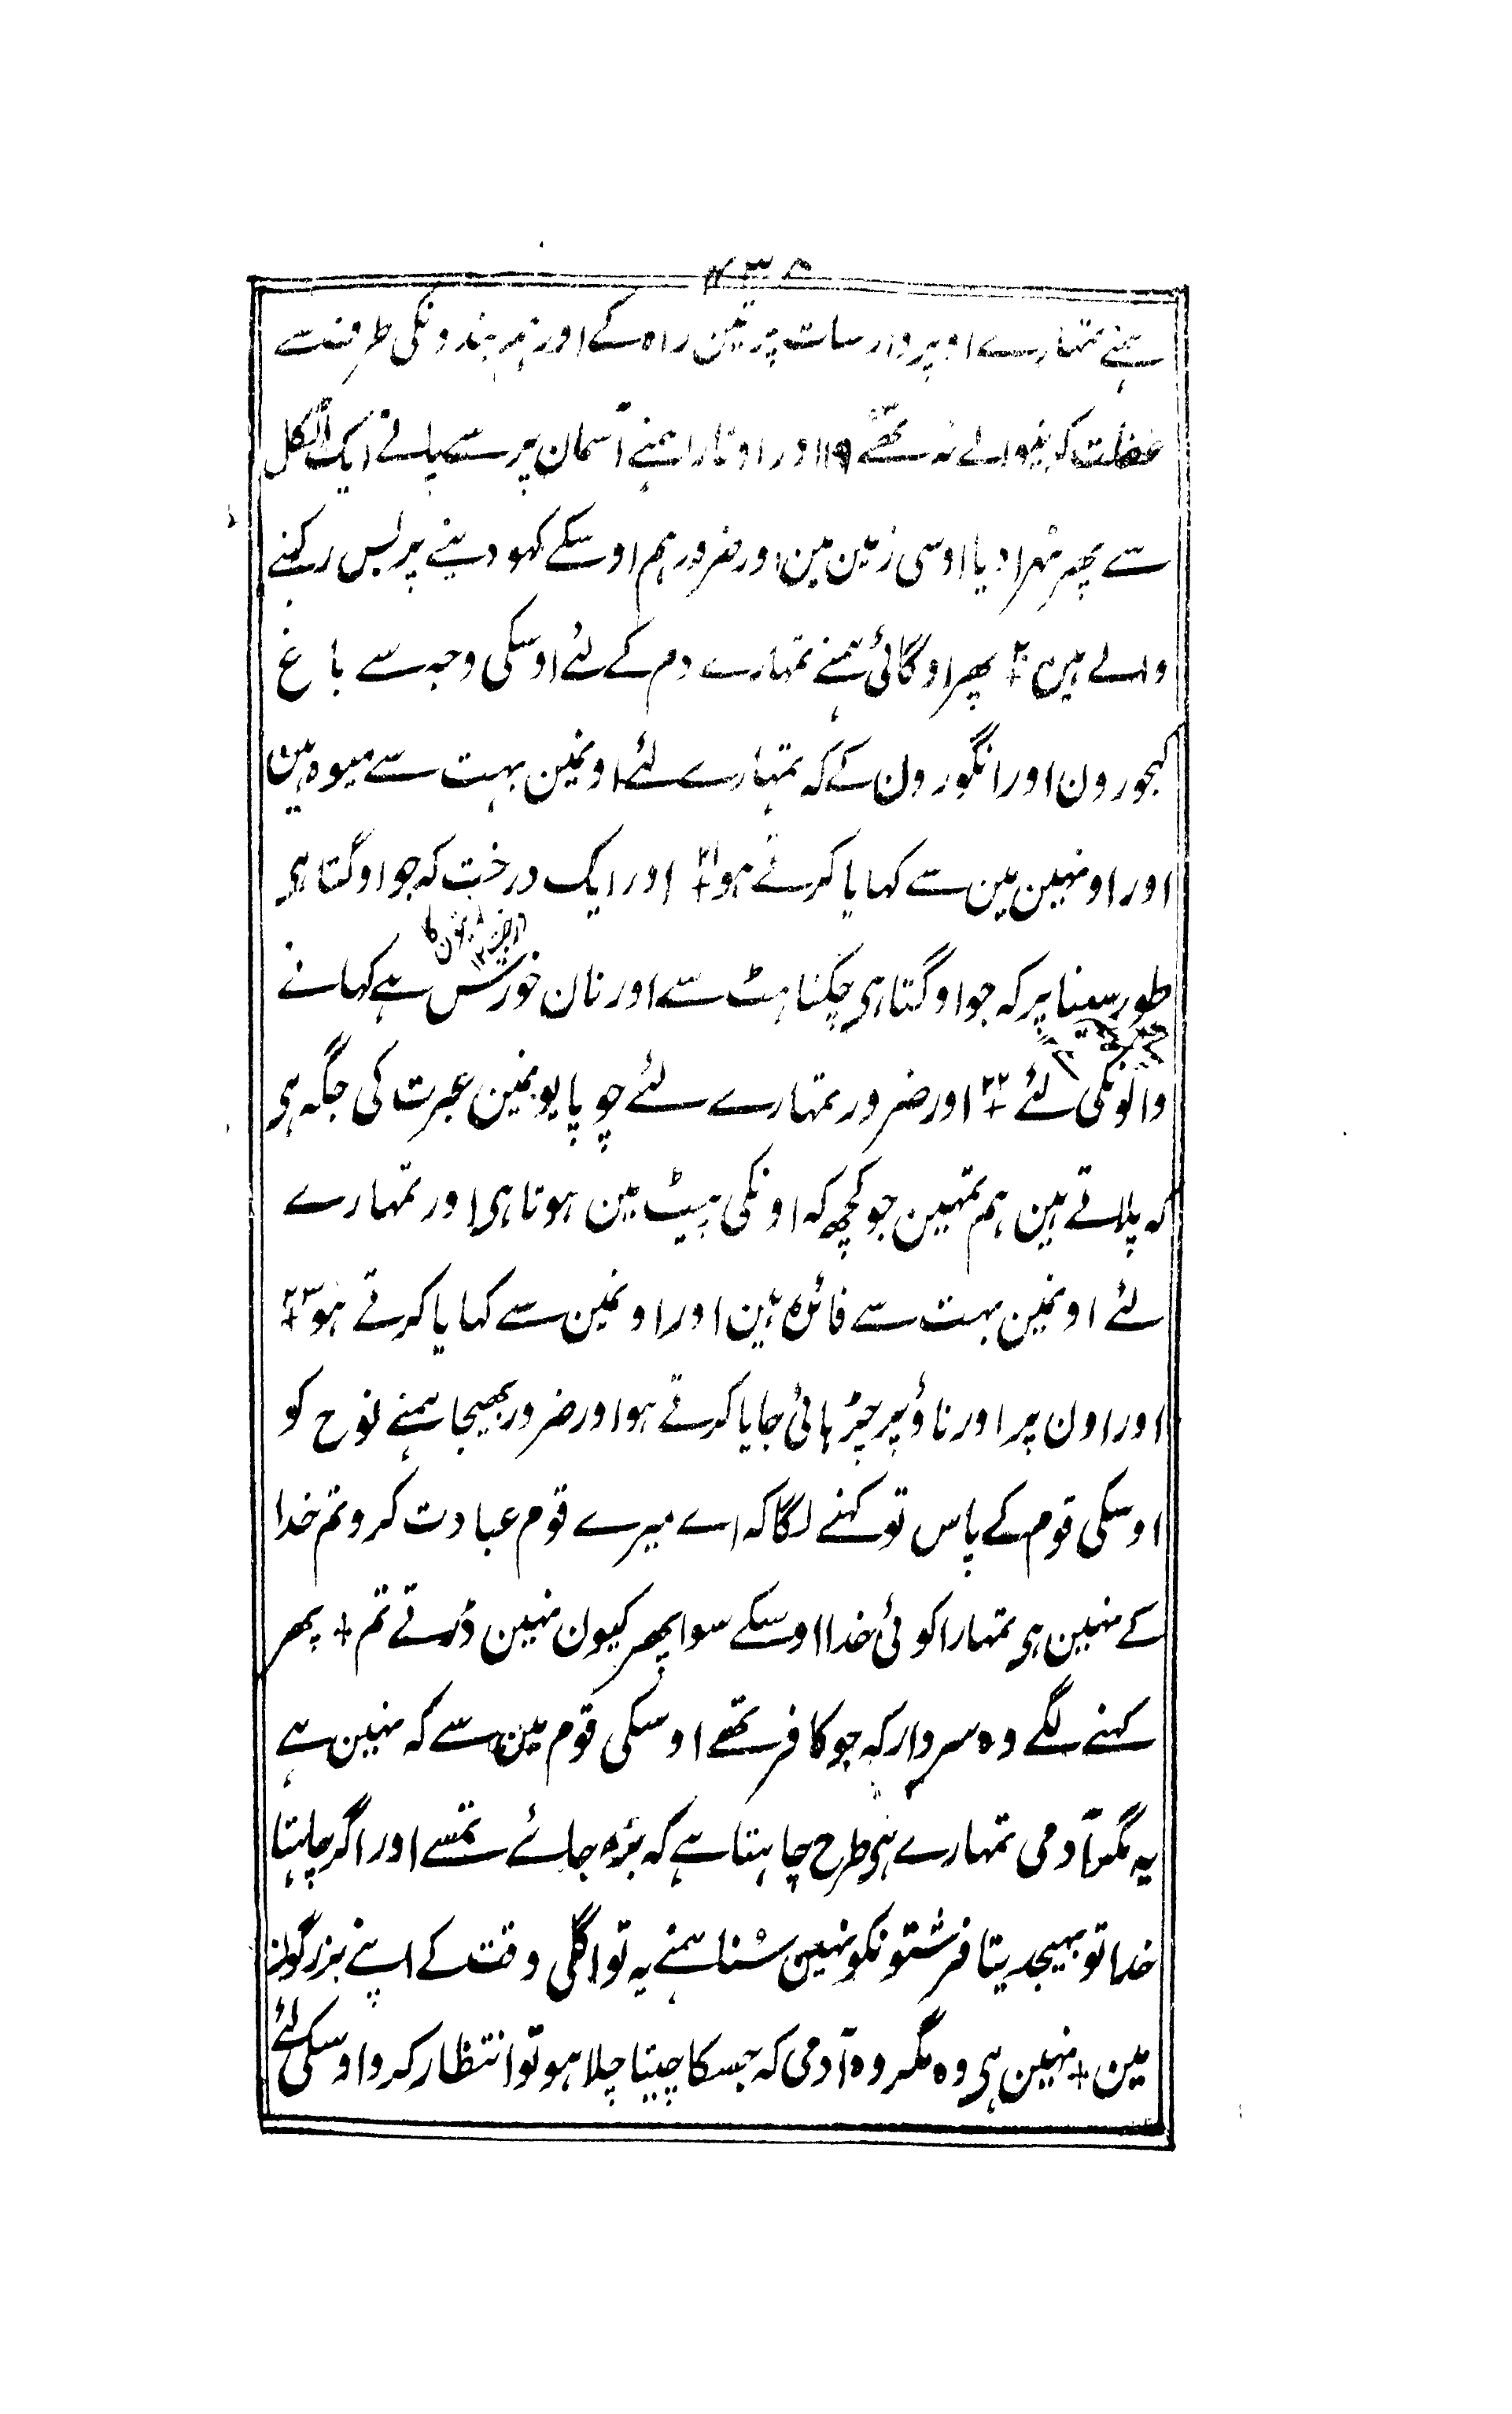 ہمنے تمہارے اوپر وار سات پرتین راہ کے اور نہ بندونکی طرفسے
غفلت کرنیوالے نہ تھے ١٩ اور اوتارا ہمنے آسمان پر سے پانے ایک اٹکل
سے پھر ٹہرا دیا اوسی زمین مین اور ضرور ہم اوسکے کہو دینے پر بس رکہنے
والے ہین ٢٠ پھر اوگائی ہمنے تمہارے دم کے لئے اوسکی وجہ سے باغ
کہجورون اور انگورون کے کہ تمہارے لئے اونمین بہت سے میوہ ہین
اور اونہین مین سے کہایا کرتے ہو ٢١ اور ایک درخت کہ جو اوگتا ہی
طور سینا پر کہ جو اوگتا ہی چکناہٹ سے اور نان خورس ہے کہانے
والونکی لئے ٢٢ اور ضرور تمہارے لئے چوپایونمین عبرت کی جگہ ہی
کہ پلاتے ہین ہم تمہین جو کچھ کہ اونکی پیٹ مین ہوتا ہی اور تمہارے
لئے اونمین بہت سے فائدہ ہین اور اونمین سے کہایا کرتے ہو ٢٣
اور اون پر اور ناؤ پر چڑہائی جایا کرتے ہو اور ضرور بھیجا ہمنے نوح کو
اوسکی قوم کے پاس تو کہنے لگا کہ اے میرے قوم عبادت کرو تم خدا
کے نہین ہی تمہارا کوئی خدا اوسکے سوا پھر کیون نہین ڈرتے تم + پھر
کہنے لگے وہ سردار کہ جو کافر تھے اوسکی قوم مین سے کہ نہین ہے
یہ مگر آدمی تمہارے ہی طرح چاہتا ہے کہ بڑہ جائے تمسے اور اگر چاہتا
خدا تو بہیجدیتا فرشتونکو نہین سُنا ہمنے یہ تو اگلی وقت کے اپنے بزرگون
مین + نہین ہی وہ مگر وہ آدمی کہ جسکا چیتا چلا ہو تو انتظار کرو اوسکی لئے